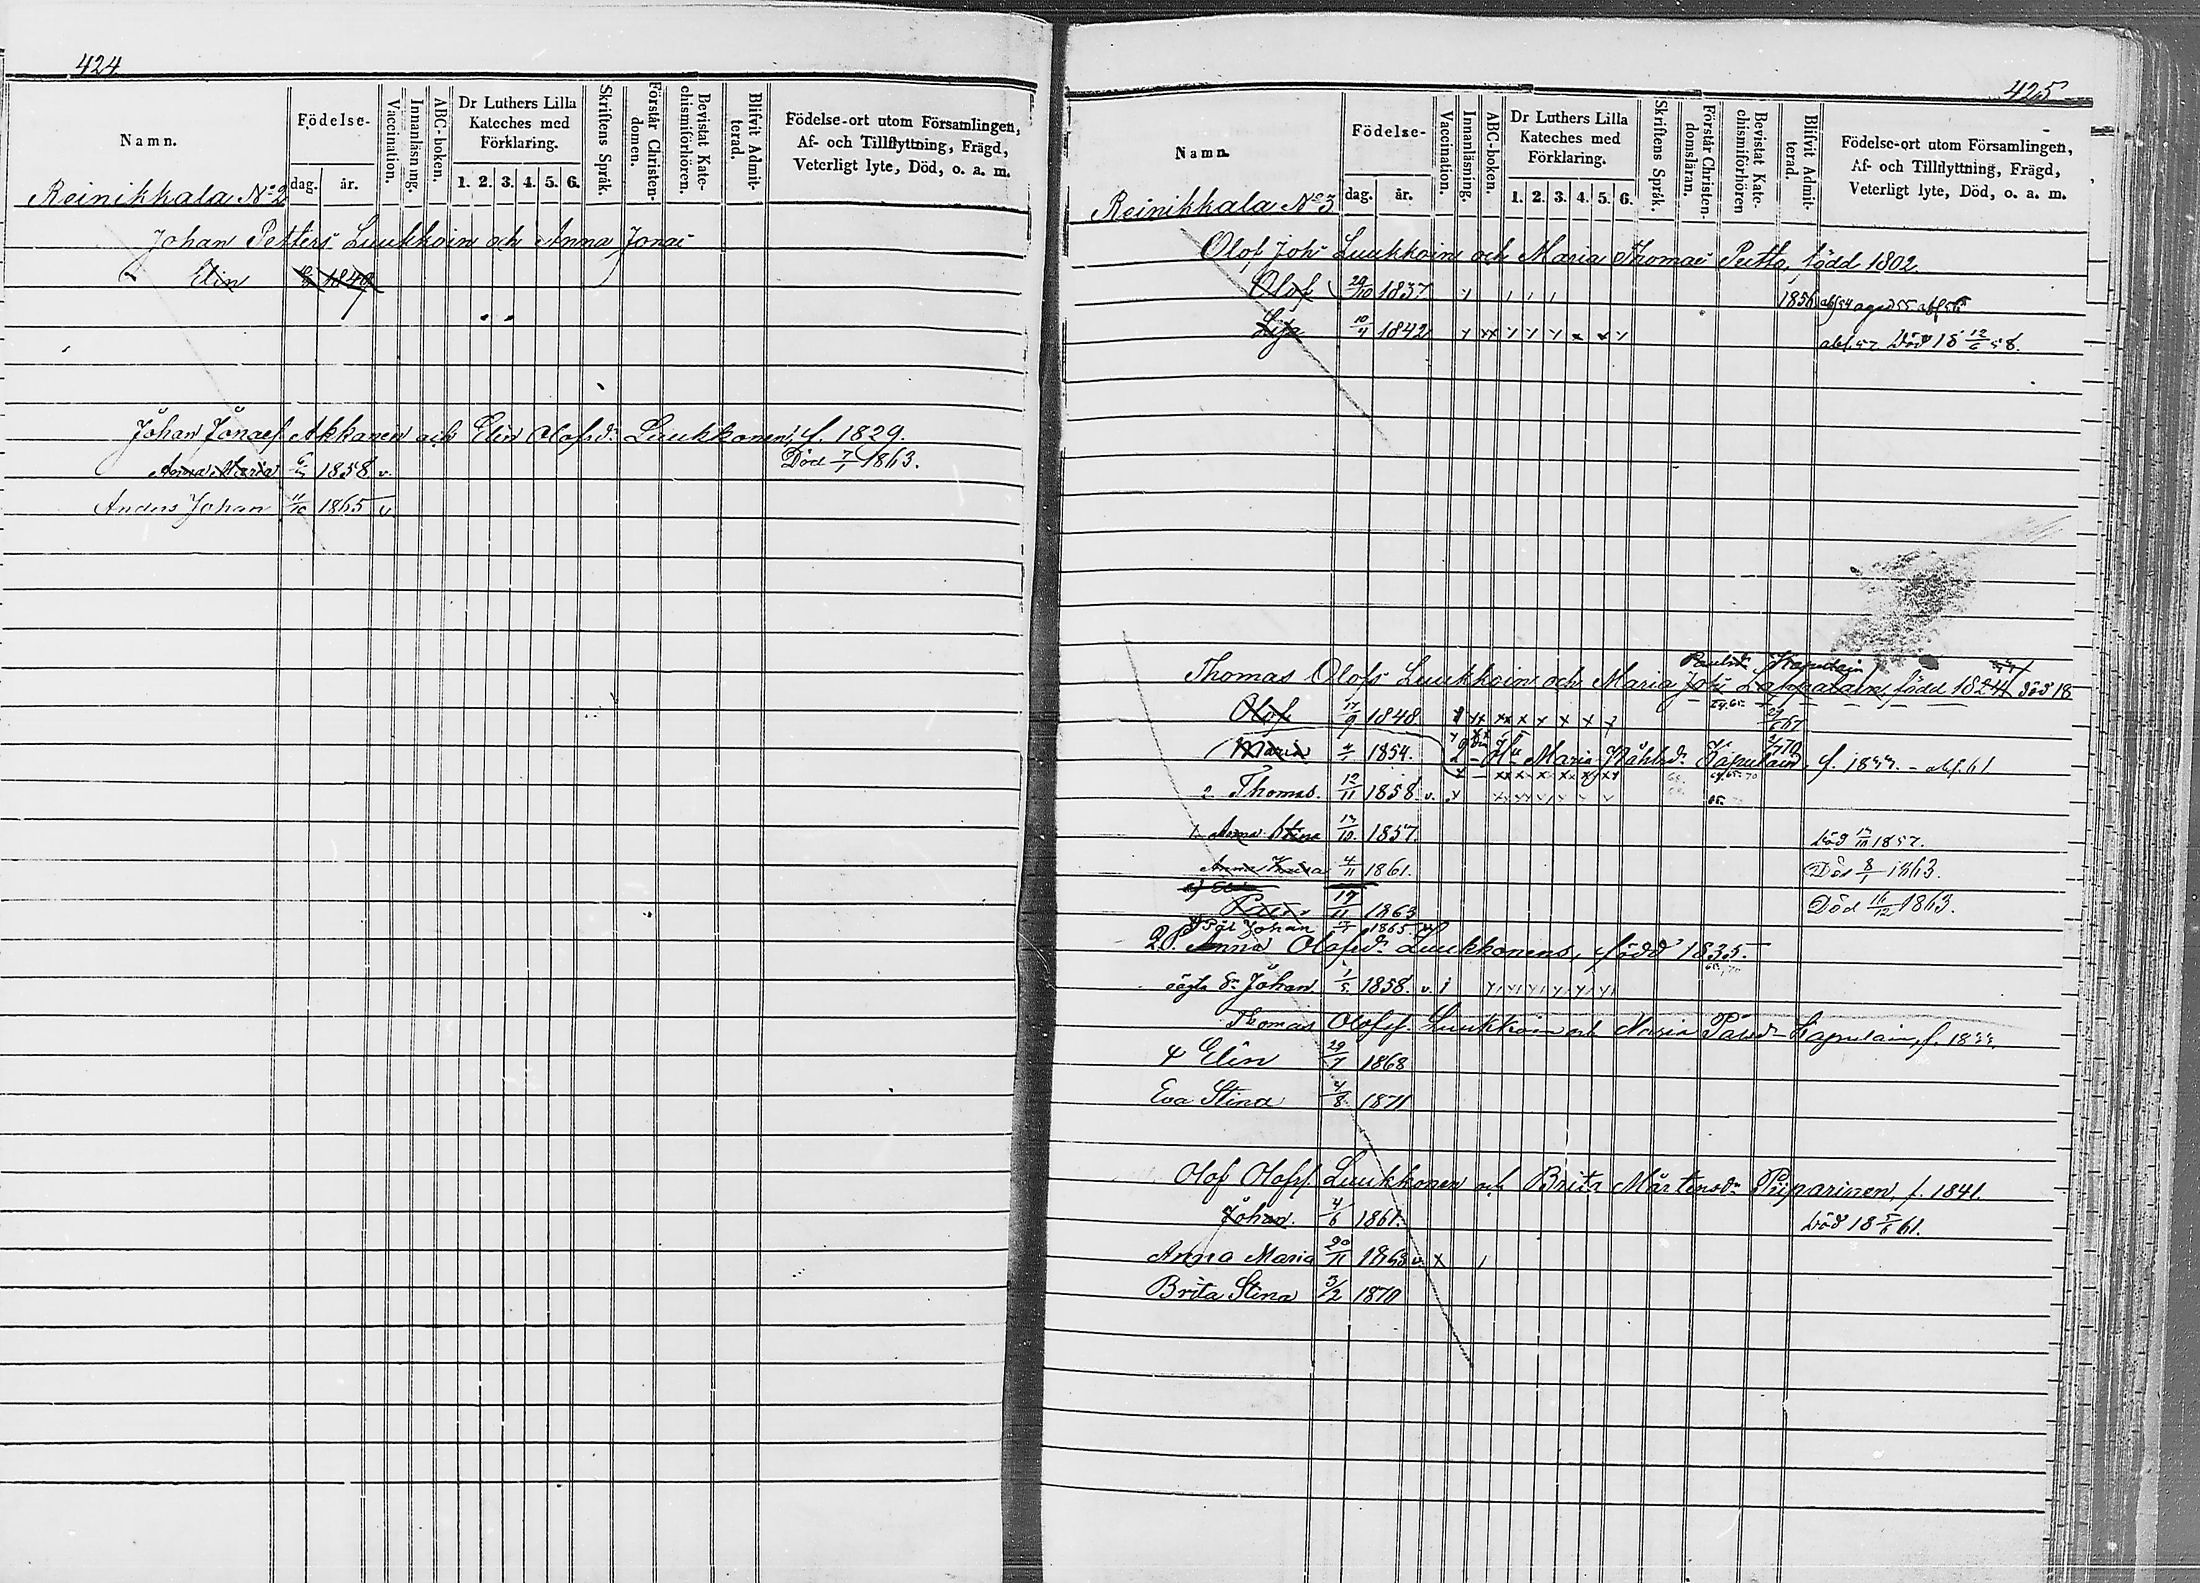 424
Namn.
Födelse-
dag. år.
Vaccination.
Innanläsning.
ABC-boken.
Dr Luthers Lilla
Kateches med
Förklaring.
1. 2. 3. 4. 5. 6.
Skriftens Språk.
Förstår Christen-
domen.
Bevistat Kate-
chismiförhören.
Blifvit Admit-
terad.
Födelse-ort utom Församlingen,
Af- och Tillflyttning, Frägd,
Veterligt lyte, Död, o. a. m.
Reinikkala No 2
Johan Petters Luukkoin och Anna Jonas
Elin
Johan Jonaef Akkanen och Elin Olofsdr Luukkonen, f. 1829.
Anna Maria 1858 v. Död 7/1 1863.
Anders Johan 11/10 1865 v.
425
Namn.
Födelse-
dag. år.
Vaccination.
Innanläsning.
ABC-boken.
Dr Luthers Lilla
Kateches med
Förklaring.
1. 2. 3. 4. 5. 6.
Skriftens Språk.
Förstår Christen-
domsläran.
Bevistat Kate-
chismiförhören
Blifvit Admit-
terad.
Födelse-ort utom Församlingen,
Af- och Tillflyttning, Frägd,
Veterligt lyte, Död, o. a. m.
Reinikkala No 3
Olof Johs Luukkoin och Maria Thomas Putto, född 1802.
Olof 29/10 1837 1856
Lisa 10/4 1842 abf. 57 Död 18 12/6 58.
Paulsdr Kapulain
Thomas Olofs Luukkoin och Maria Johs Lappalain, född 1824 död 18
Olof 17/9 1848 67
Maria 1854. Hu Maria Påhlsdr Kapulain, f. 1833. - abf. 61
2 Thomas. 12/11 1858 v.
Anna Stina 13/10 1857. Död 1857.
Anna Kaisa 4/11 1861. Död 8/1 1863.
17/11 1863 Död 16/12 1863.
Pål Johan 1865.
Anna Olofsdr Luukkonens, född 1835.
oägta Sn Johan 1/5 1858. v. i
Thomas Olofsf. Luukkoin och Maria Pålsdr Kapulain, f. 1833.
4 Elin 29/7 1868
Eva Stina 4/8 1871
Olof Olofsf. Luukkonen och Brita Mårtensdr Piiparinen, f. 1841.
Johan. 4/6 1861. Död 18 5/6 61.
Anna Maria 20/11 1863 v. x
Brita Stina 3/2 1870